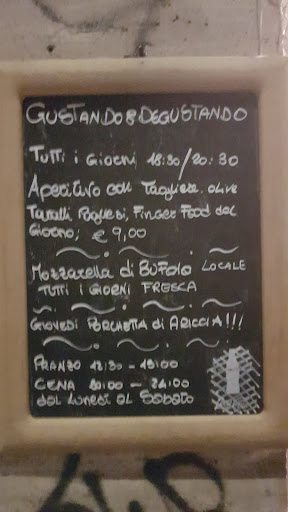 GUSTANDO & DEGUSTANDO
TUTTI i GIORNI 18:30/20:30
Aperitivo con Tagliere, olive
Taralli Pugliesi, Finger Food del
Giorno; € 9,00
Mozzarella di BUFALA LOCALE
TUTTI I GIORNI FRESCA
GIOVEDI PORCHETTA di ARICCIA!!!
PRANZO 12:30 - 15:00
CENA 20:00 - 24:00
dal Lunedi al Sabato